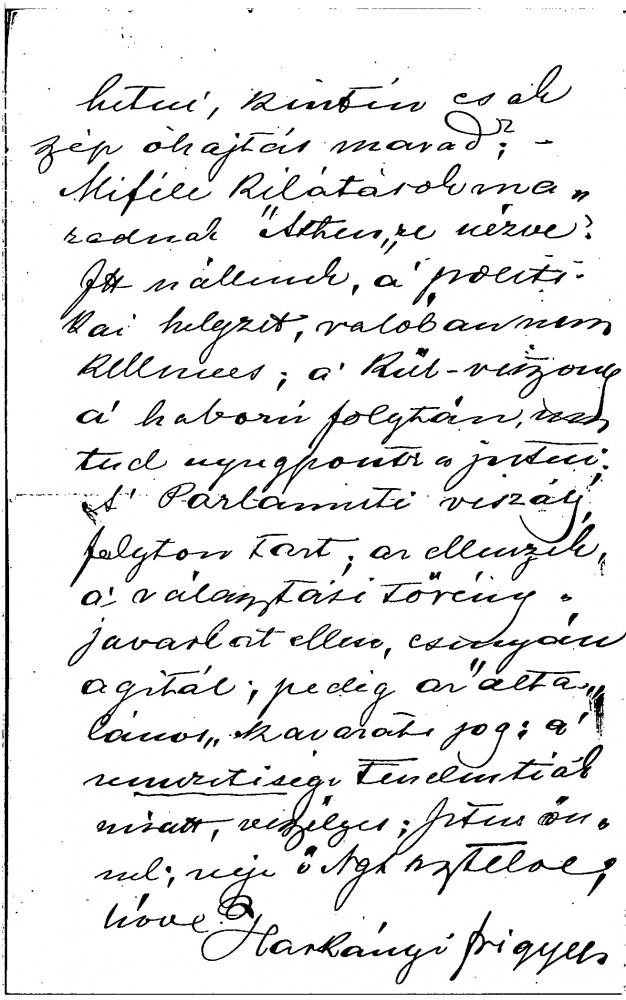 hetni, kintin csak
szép óhajtás marad; –
Miféle kilátások ma„
radnak "Athen„re nézve?
Itt nállunk, a' politi-
kai helyzet, valóban nem
kellmees; a' Kül-viszony
a' háború folytán, nem
tud nyugpontra jutni;
A' Parlamenti viszály,
folyton tart; az ellenzék,
a' választási törvény-
javaslat ellen, csunyán
agitál; pedig az "álta„
lános„ szavazati jog; a'
nemzetiségi tendentiák
miatt, veszélyes; Isten ön-
nel; neje ő Ngt tisztelve;
híve
Harkányi Frigyes